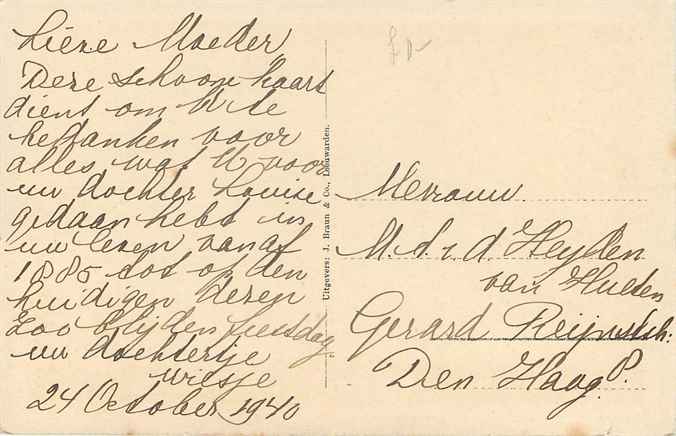 Lieve Moeder,
Deze schoone kaart
dient om U te
bedanken voor
alles wat U voor
uw dochter Louise
gedaan hebt in
uw leven vanaf
1885 tot op den
huidigen dezen
zoo blijden feestdag.
uw dochtertje
wiesje
24 October 1940
Uitgevers: J. Braun & Co., Leeuwarden.
Mevrouw
v. d. Heyden
van Hulten
Gerard Reijnstsh:
Den Haag.